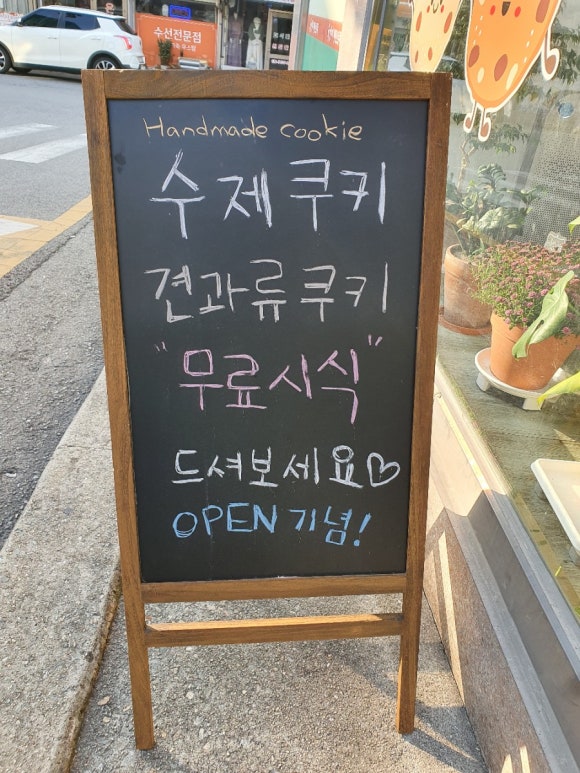 수선전문점
Handmade cookie
수제쿠키
견과류쿠키
"무료시식"
드셔보세요♡
OPEN 기념!